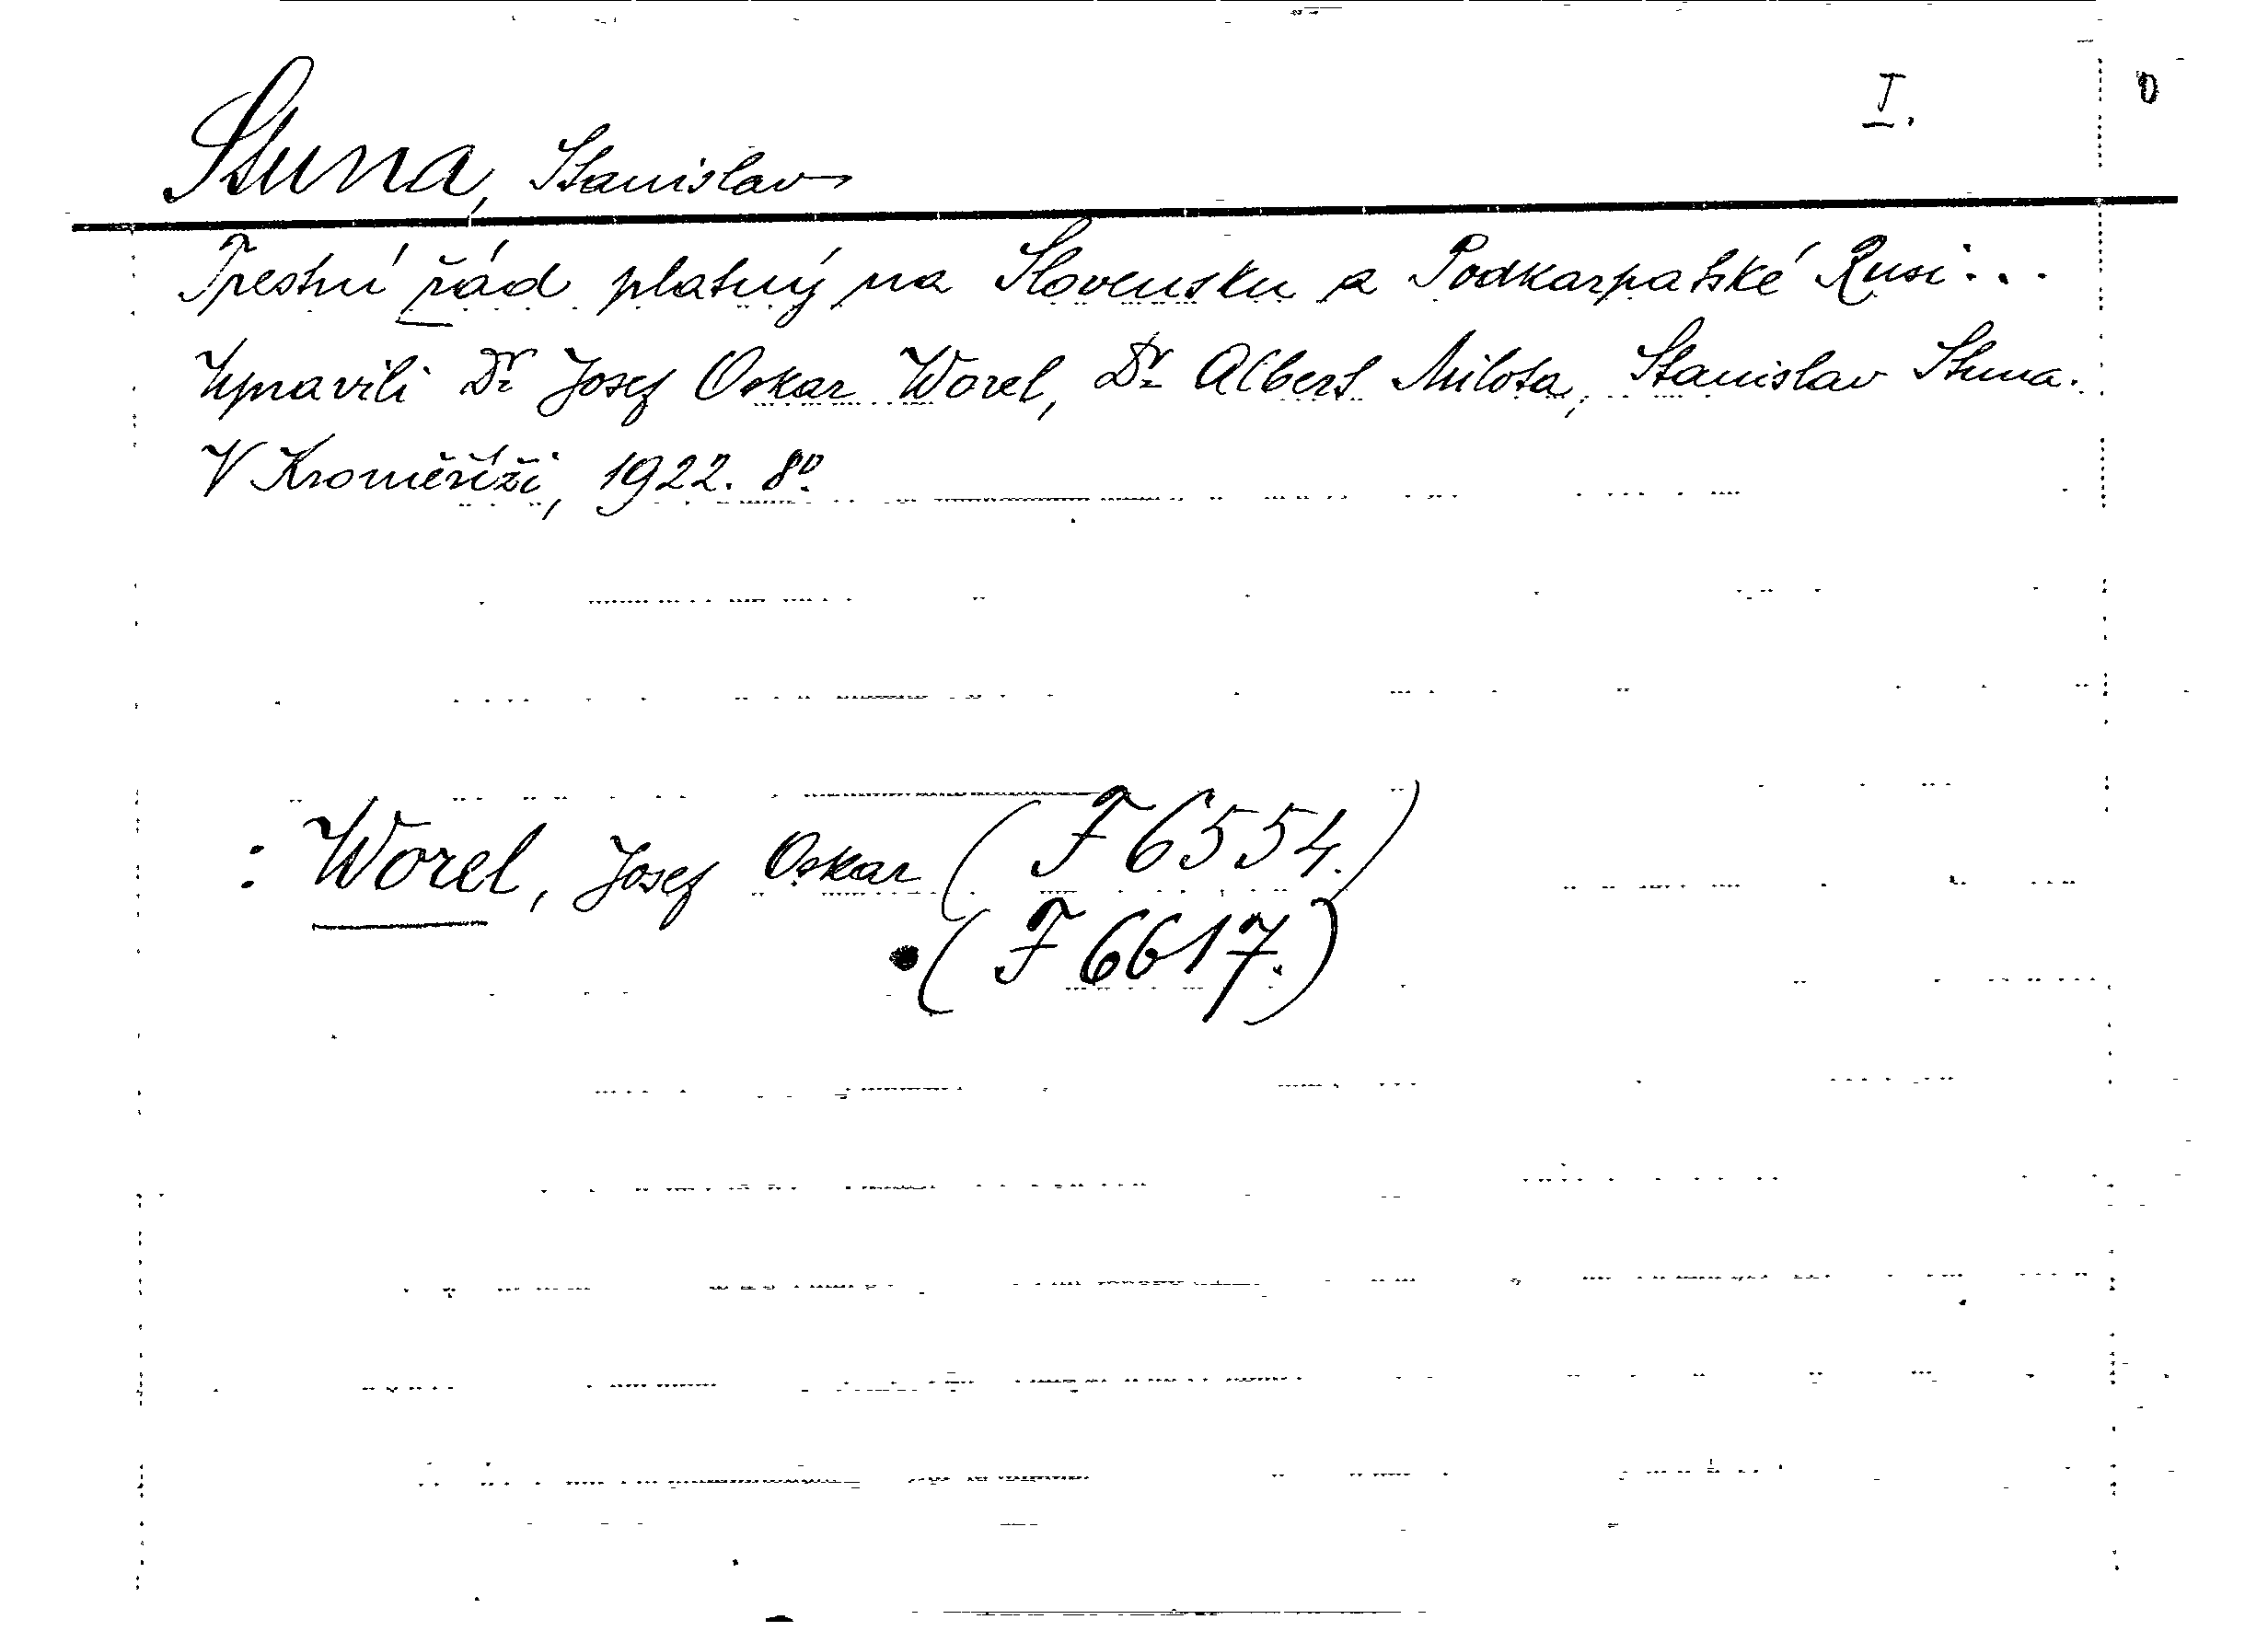 Stuna, Stanislav
I.
Trestní řád platný na Slovensku a Podkarpatské Rusi...
Upravili Dr Josef Oskar Worel, Dr Albert Milota, Stanislav Stuna.
V Kroměříži, 1922. 8º.
: Worel, Josef Oskar (F 6554.)
(F 6617.)